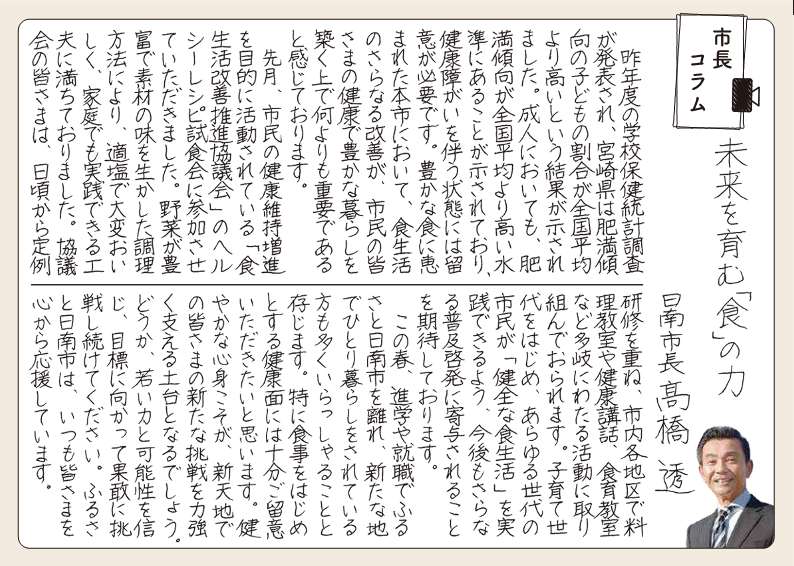 市長
コラム
未来を育む「食」の力
日南市長 髙橋 透
昨年度の学校保健統計調査
が発表され、宮崎県は肥満傾
向の子どもの割合が全国平均
より高いという結果が示され
ました。成人においても、肥
満傾向が全国平均より高い水
準にあることが示されており、
健康障がいを伴う状態には留
意が必要です。豊かな食に恵
まれた本市において、食生活
のさらなる改善が、市民の皆
さまの健康で豊かな暮らしを
築く上で何よりも重要である
と感じております。
先月、市民の健康維持増進
を目的に活動されている「食
生活改善推進協議会」のヘル
シーレシピ試食会に参加させ
ていただきました。野菜が豊
富で素材の味を生かした調理
方法により、適塩で大変おい
しく、家庭でも実践できる工
夫に満ちておりました。協議
会の皆さまは、日頃から定例
研修を重ね、市内各地区で料
理教室や健康講話、食育教室
など多岐にわたる活動に取り
組んでおられます。子育て世
代をはじめ、あらゆる世代の
市民が「健全な食生活」を実
践できるよう、今後もさらな
る普及啓発に寄与されること
を期待しております。
この春、進学や就職でふる
さと日南市を離れ、新たな地
でひとり暮らしをされている
方も多くいらっしゃることと
存じます。特に食事をはじめ
とする健康面には十分ご留意
いただきたいと思います。健
やかな心身こそが、新天地で
の皆さまの新たな挑戦を力強
く支える土台となるでしょう。
どうか、若い力と可能性を信
じ、目標に向かって果敢に挑
戦し続けてください。ふるさ
と日南市は、いつも皆さまを
心から応援しています。